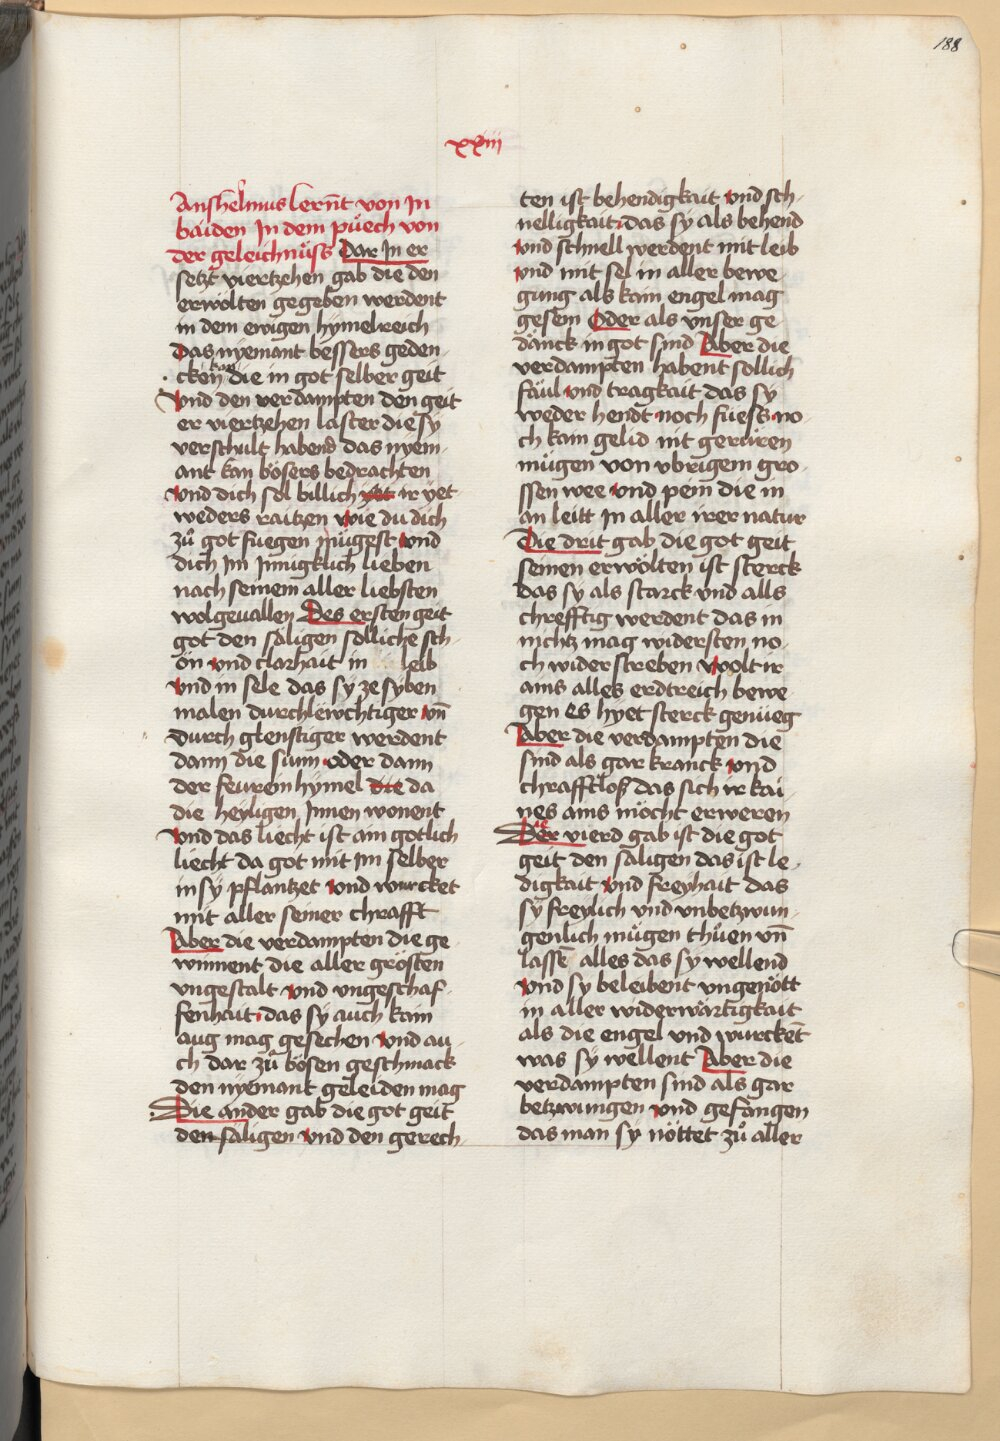 188
xxiii
Anshelmus lernt von In
baiden In dem puͤech von
der geleichnuͤss Dar In er
setzt viertzehen gab die den
erwolten gegeben werdent
in dem ewigen hymelreich
Das nyemant bessers geden-
cken kan die in got selber geit
Vnd den verdampten den geit
er viertzehen laster die sy
verschult habend das nyem-
ant kan bösers bedrachten
Vnd dich sol billich yet ir yet
weders raitzen wie du dich
zů got fuegen mügest vnd
dich Im Innigklich lieben
nach seinem aller liebsten
wolgeuallen Des ersten geit
got den säligen solliche sch-
ön vnd clarhait in leib
Vnd in sele das sy ze syben
malen durchlewchtiger vn̄
durch glenstiger werdent
dann die sunn oder dann
der feurein hymel die da
die heyligen Innen wonent
Vnd das liecht ist ain gotlich
liecht da got mit Im selber
in sy pflantzet vnd wurcket
mit aller seiner chrafft
Aber die verdampten die ge-
winnent die aller grösten
vngestalt vnd vngeschaf-
fenhait das sy auch kain
aug mag gesechen vnd au-
ch dar zů bösen geschmack
den nyemant geleiden mag
Die ander gab die got geit
den säligen vnd den gerech-
ten ist behendigkait vnd sch-
nelligkait das sy als behend
vnd schnell werdent mit leib
vnd mit sel in aller bewe-
gung als kain engel mag
gesein Oder als vnser ge
dänck in got sind Aber die
verdampten habent sollich
fäul vnd tragkait das sy
weder hendt noch fuess no-
ch kain gelid nit gerüren
mügen von vbrigem gro-
ssen wee vnd pein die in
an leitt In aller irer natur
Die drit gab die got geit
seinen erwölten ist sterck
das sy als starck vnd alls
chrefftig werdent das in
nichtz mag widersten no-
ch widerstreben wolt ir
ains alles erdtreich bewe
gen es hyet sterck genüeg
Aber die verdampten die
sind als gar kranck vnd
chrafftlos das sich ir kai-
nes ains möcht erweren
Die vierd gab ist die got
geit den säligen das ist le-
digkait vnd freyhait das
sy freylich vnd vnbetzwun-
genlich mügen thüen vn̄
lassen alles das sy wellend
vnd sy beleibent vngenött
in aller widerwärtigkait
als die engel vnd wurcket
was sy wellent Aber die
verdampten sind als gar
betzwungen vnd gefangen
das man sy nöttet zů aller